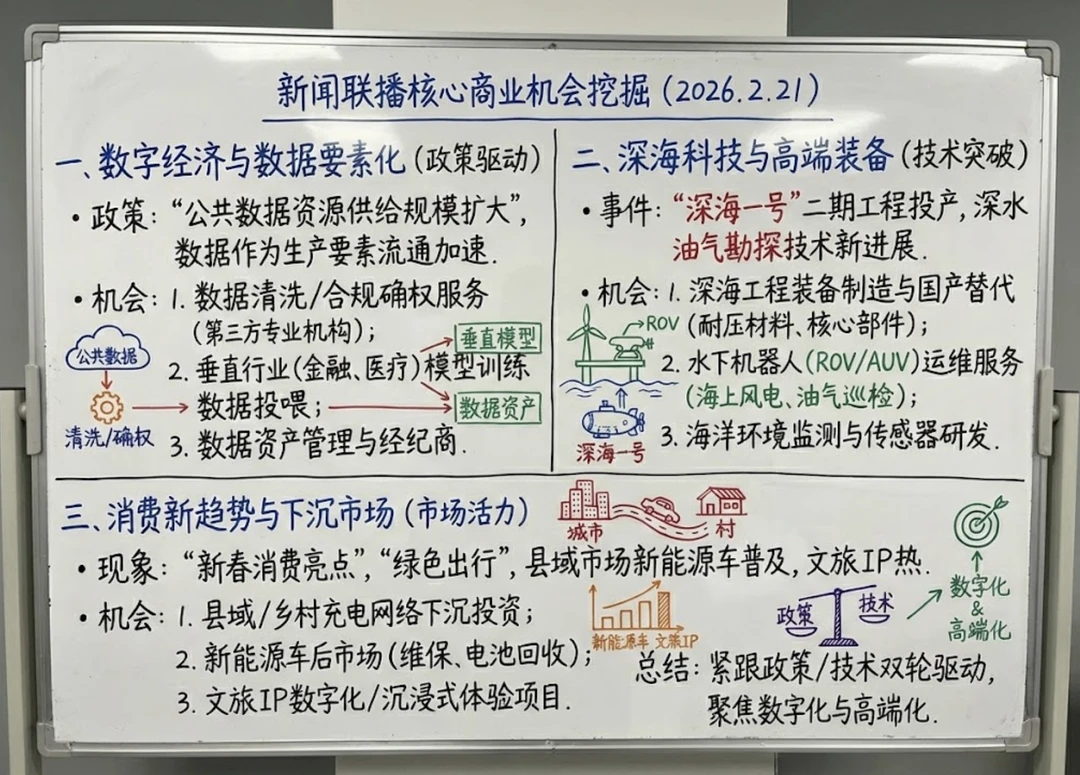 新闻联播核心商业机会挖掘(2026.2.21)
一、数字经济与数据要素化(政策驱动)
• 政策: “公共数据资源供给规模扩大”,
数据作为生产要素流通加速.
• 机会: 1. 数据清洗/合规确权服务
(第三方专业机构);
2. 垂直行业(金融、医疗)模型训练
数据投喂;
3. 数据资产管理与经纪商.
公共数据
清洗/确权
垂直模型
数据资产
二、深海科技与高端装备(技术突破)
• 事件: “深海一号”二期工程投产, 深水
油气勘探技术新进展.
• 机会: 1. 深海工程装备制造与国产替代
(耐压材料、核心部件);
2. 水下机器人(ROV/AUV)运维服务
(海上风电、油气巡检);
3. 海洋环境监测与传感器研发.
ROV
深海一号
三、消费新趋势与下沉市场(市场活力)
城市
村
• 现象: “新春消费亮点”, “绿色出行”, 县域市场新能源车普及, 文旅IP热.
• 机会: 1. 县域/乡村充电网络下沉投资;
2. 新能源车后市场(维保、电池回收);
3. 文旅IP数字化/沉浸式体验项目.
新能源车 文旅IP
政策
技术
数字化
&
高端化
总结: 紧跟政策/技术双轮驱动,
聚焦数字化与高端化.